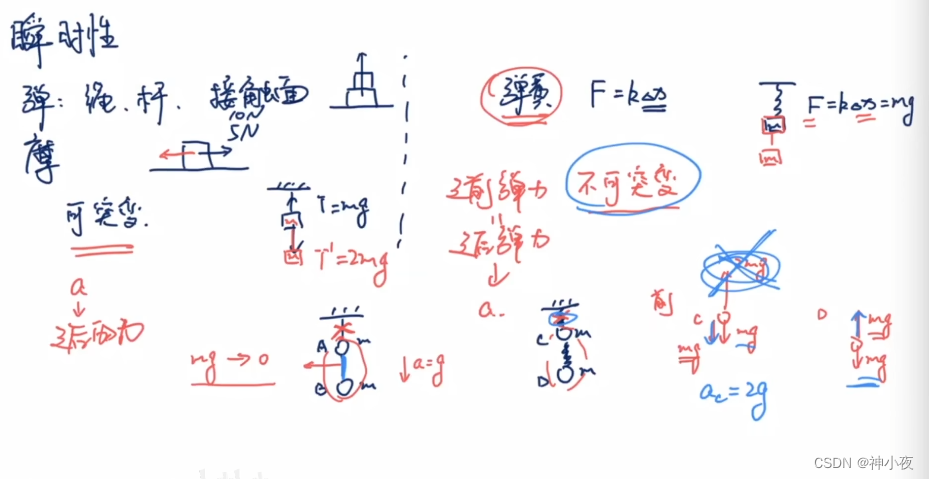 瞬时性
弹：绳、杆、接触面
10N
5N
摩
可突变.
a
↓
T=mg
m
m
T'=2mg
mg → 0
A m
B m
↓a=g
弹簧 F=kΔx
F=kΔx=mg
m
m
之前弹力 不可突变
之后弹力
↓
a.
C m
D m
前
mg
C
mg
mg
a_c=2g
D
mg
mg
CSDN @神小夜